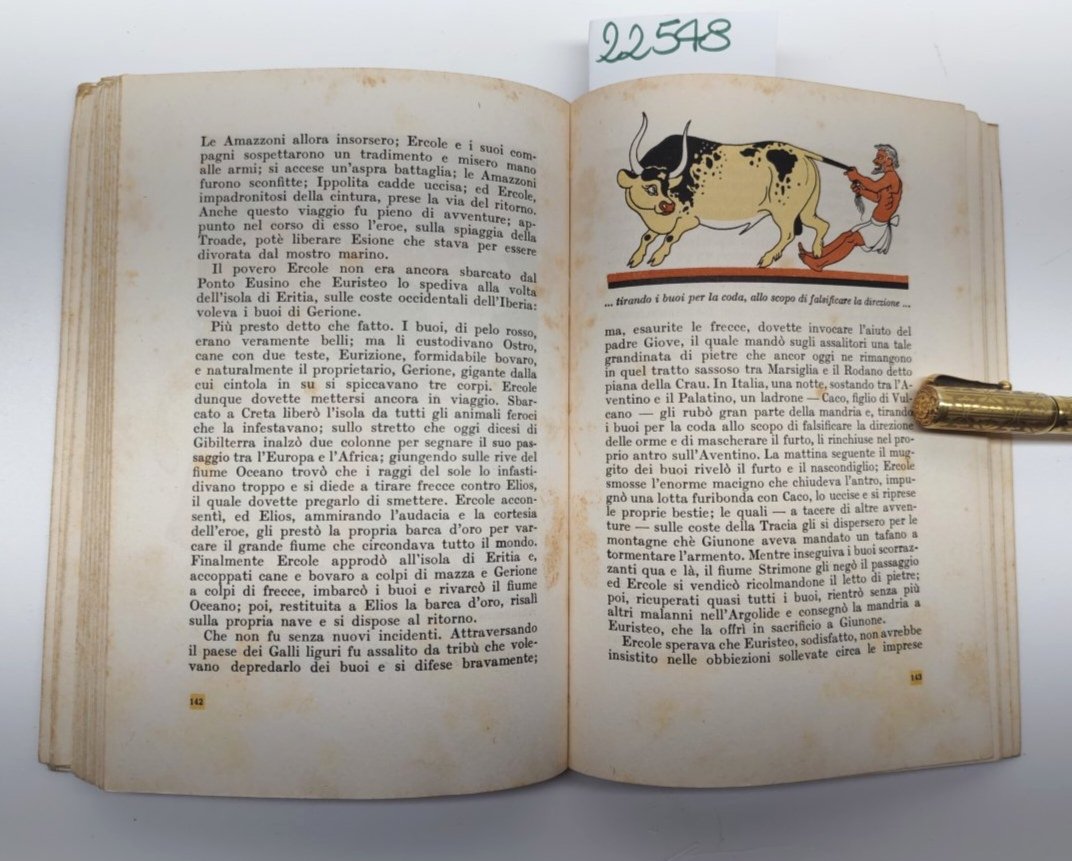 22548
Le Amazzoni allora insorsero; Ercole e i suoi com-
pagni sospettarono un tradimento e misero mano
alle armi; si accese un'aspra battaglia; le Amazzoni
furono sconfitte; Ippolita cadde uccisa; ed Ercole,
impadronitosi della cintura, prese la via del ritorno.
Anche questo viaggio fu pieno di avventure; ap-
punto nel corso di esso l'eroe, sulla spiaggia della
Troade, potè liberare Esione che stava per essere
divorata dal mostro marino.
Il povero Ercole non era ancora sbarcato dal
Ponto Eusino che Euristeo lo spediva alla volta
dell'isola di Eritia, sulle coste occidentali dell'Iberia:
voleva i buoi di Gerione.
Più presto detto che fatto. I buoi, di pelo rosso,
erano veramente belli; ma li custodivano Ostro,
cane con due teste, Eurizione, formidabile bovaro,
e naturalmente il proprietario, Gerione, gigante dalla
cui cintola in su si spiccavano tre corpi. Ercole
dunque dovette mettersi ancora in viaggio. Sbar-
cato a Creta liberò l'isola da tutti gli animali feroci
che la infestavano; sullo stretto che oggi dicesi di
Gibilterra inalzò due colonne per segnare il suo pas-
saggio tra l'Europa e l'Africa; giungendo sulle rive del
fiume Oceano trovò che i raggi del sole lo infasti-
divano troppo e si diede a tirare frecce contro Elios,
il quale dovette pregarlo di smettere. Ercole accon-
sentì, ed Elios, ammirando l'audacia e la cortesia
dell'eroe, gli prestò la propria barca d'oro per var-
care il grande fiume che circondava tutto il mondo.
Finalmente Ercole approdò all'isola di Eritia e,
accoppati cane e bovaro a colpi di mazza e Gerione
a colpi di frecce, imbarcò i buoi e rivarcò il fiume
Oceano; poi, restituita a Elios la barca d'oro, risalì
sulla propria nave e si dispose al ritorno.
Che non fu senza nuovi incidenti. Attraversando
il paese dei Galli liguri fu assalito da tribù che vole-
vano depredarlo dei buoi e si difese bravamente;
142
... tirando i buoi per la coda, allo scopo di falsificare la direzione ...
ma, esaurite le frecce, dovette invocare l'aiuto del
padre Giove, il quale mandò sugli assalitori una tale
grandinata di pietre che ancor oggi ne rimangono
in quel tratto sassoso tra Marsiglia e il Rodano detto
piana della Crau. In Italia, una notte, sostando tra l'A-
ventino e il Palatino, un ladrone — Caco, figlio di Vul-
cano — gli rubò gran parte della mandria e, tirando
i buoi per la coda allo scopo di falsificare la direzione
delle orme e di mascherare il furto, li rinchiuse nel pro-
prio antro sull'Aventino. La mattina seguente il mug-
gito dei buoi rivelò il furto e il nascondiglio; Ercole
smosse l'enorme macigno che chiudeva l'antro, impu-
gnò una lotta furibonda con Caco, lo uccise e si riprese
le proprie bestie; le quali — a tacere di altre avven-
ture — sulle coste della Tracia gli si dispersero per le
montagne chè Giunone aveva mandato un tafano a
tormentare l'armento. Mentre inseguiva i buoi scorraz-
zanti qua e là, il fiume Strimone gli negò il passaggio
ed Ercole si vendicò ricolmandone il letto di pietre;
poi, ricuperati quasi tutti i buoi, rientrò senza più
altri malanni nell'Argolide e consegnò la mandria a
Euristeo, che la offrì in sacrificio a Giunone.
Ercole sperava che Euristeo, sodisfatto, non avrebbe
insistito nelle obbiezioni sollevate circa le imprese
143